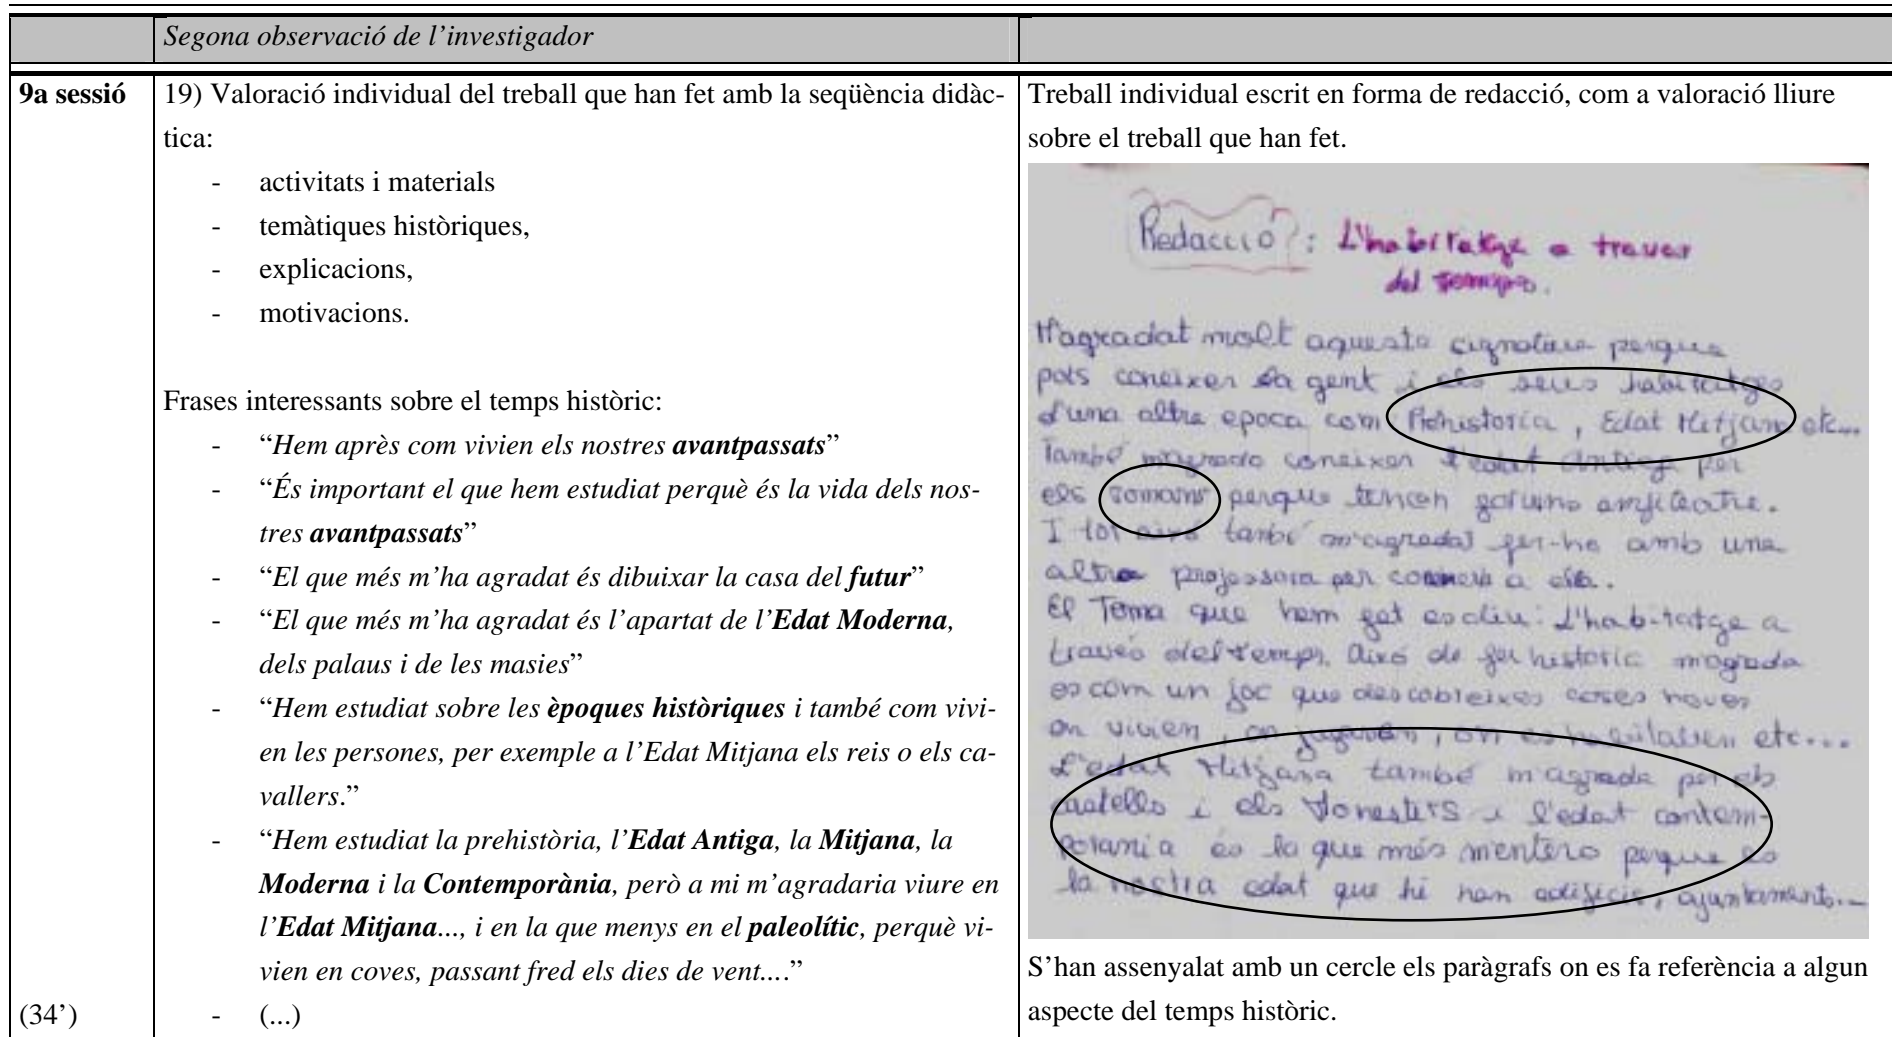 Segona observació de l’investigador
9a sessió
(34’)
19) Valoració individual del treball que han fet amb la seqüència didàc-
tica:
- activitats i materials
- temàtiques històriques,
- explicacions,
- motivacions.
Frases interessants sobre el temps històric:
- “Hem après com vivien els nostres avantpassats”
- “És important el que hem estudiat perquè és la vida dels nos-
tres avantpassats”
- “El que més m’ha agradat és dibuixar la casa del futur”
- “El que més m’ha agradat és l’apartat de l’Edat Moderna,
dels palaus i de les masies”
- “Hem estudiat sobre les èpoques històriques i també com vivi-
en les persones, per exemple a l’Edat Mitjana els reis o els ca-
vallers.”
- “Hem estudiat la prehistòria, l’Edat Antiga, la Mitjana, la
Moderna i la Contemporània, però a mi m’agradaria viure en
l’Edat Mitjana..., i en la que menys en el paleolític, perquè vi-
vien en coves, passant fred els dies de vent....”
- (...)
Treball individual escrit en forma de redacció, com a valoració lliure
sobre el treball que han fet.
Redacció: L'habitatge a traves
del temps.
M'agradat molt aquesta perque
pots coneixer la gent i els seus habitatges
d'una altre epoca com Prehistoria, Edat Mitjana etc...
També coneixer l'edat antiga per
els romans perque tencen amfiteatre.
I tot això també m'agradat fer-ho amb una
altre professora per a ella.
El Tema que hem fet es diu: L'habitatge a
través del temps. Això de fer historia m'agrada
es com un joc que descobreixes coses noves
on vivien, on jugaven, on es etc...
L'edat Mitjana també m'agrada per els
castells i els Monestirs i l'edat contem-
porania és la que més m'entero perque es
la nostra edat que hi han edificis, ajuntaments...
S’han assenyalat amb un cercle els paràgrafs on es fa referència a algun
aspecte del temps històric.